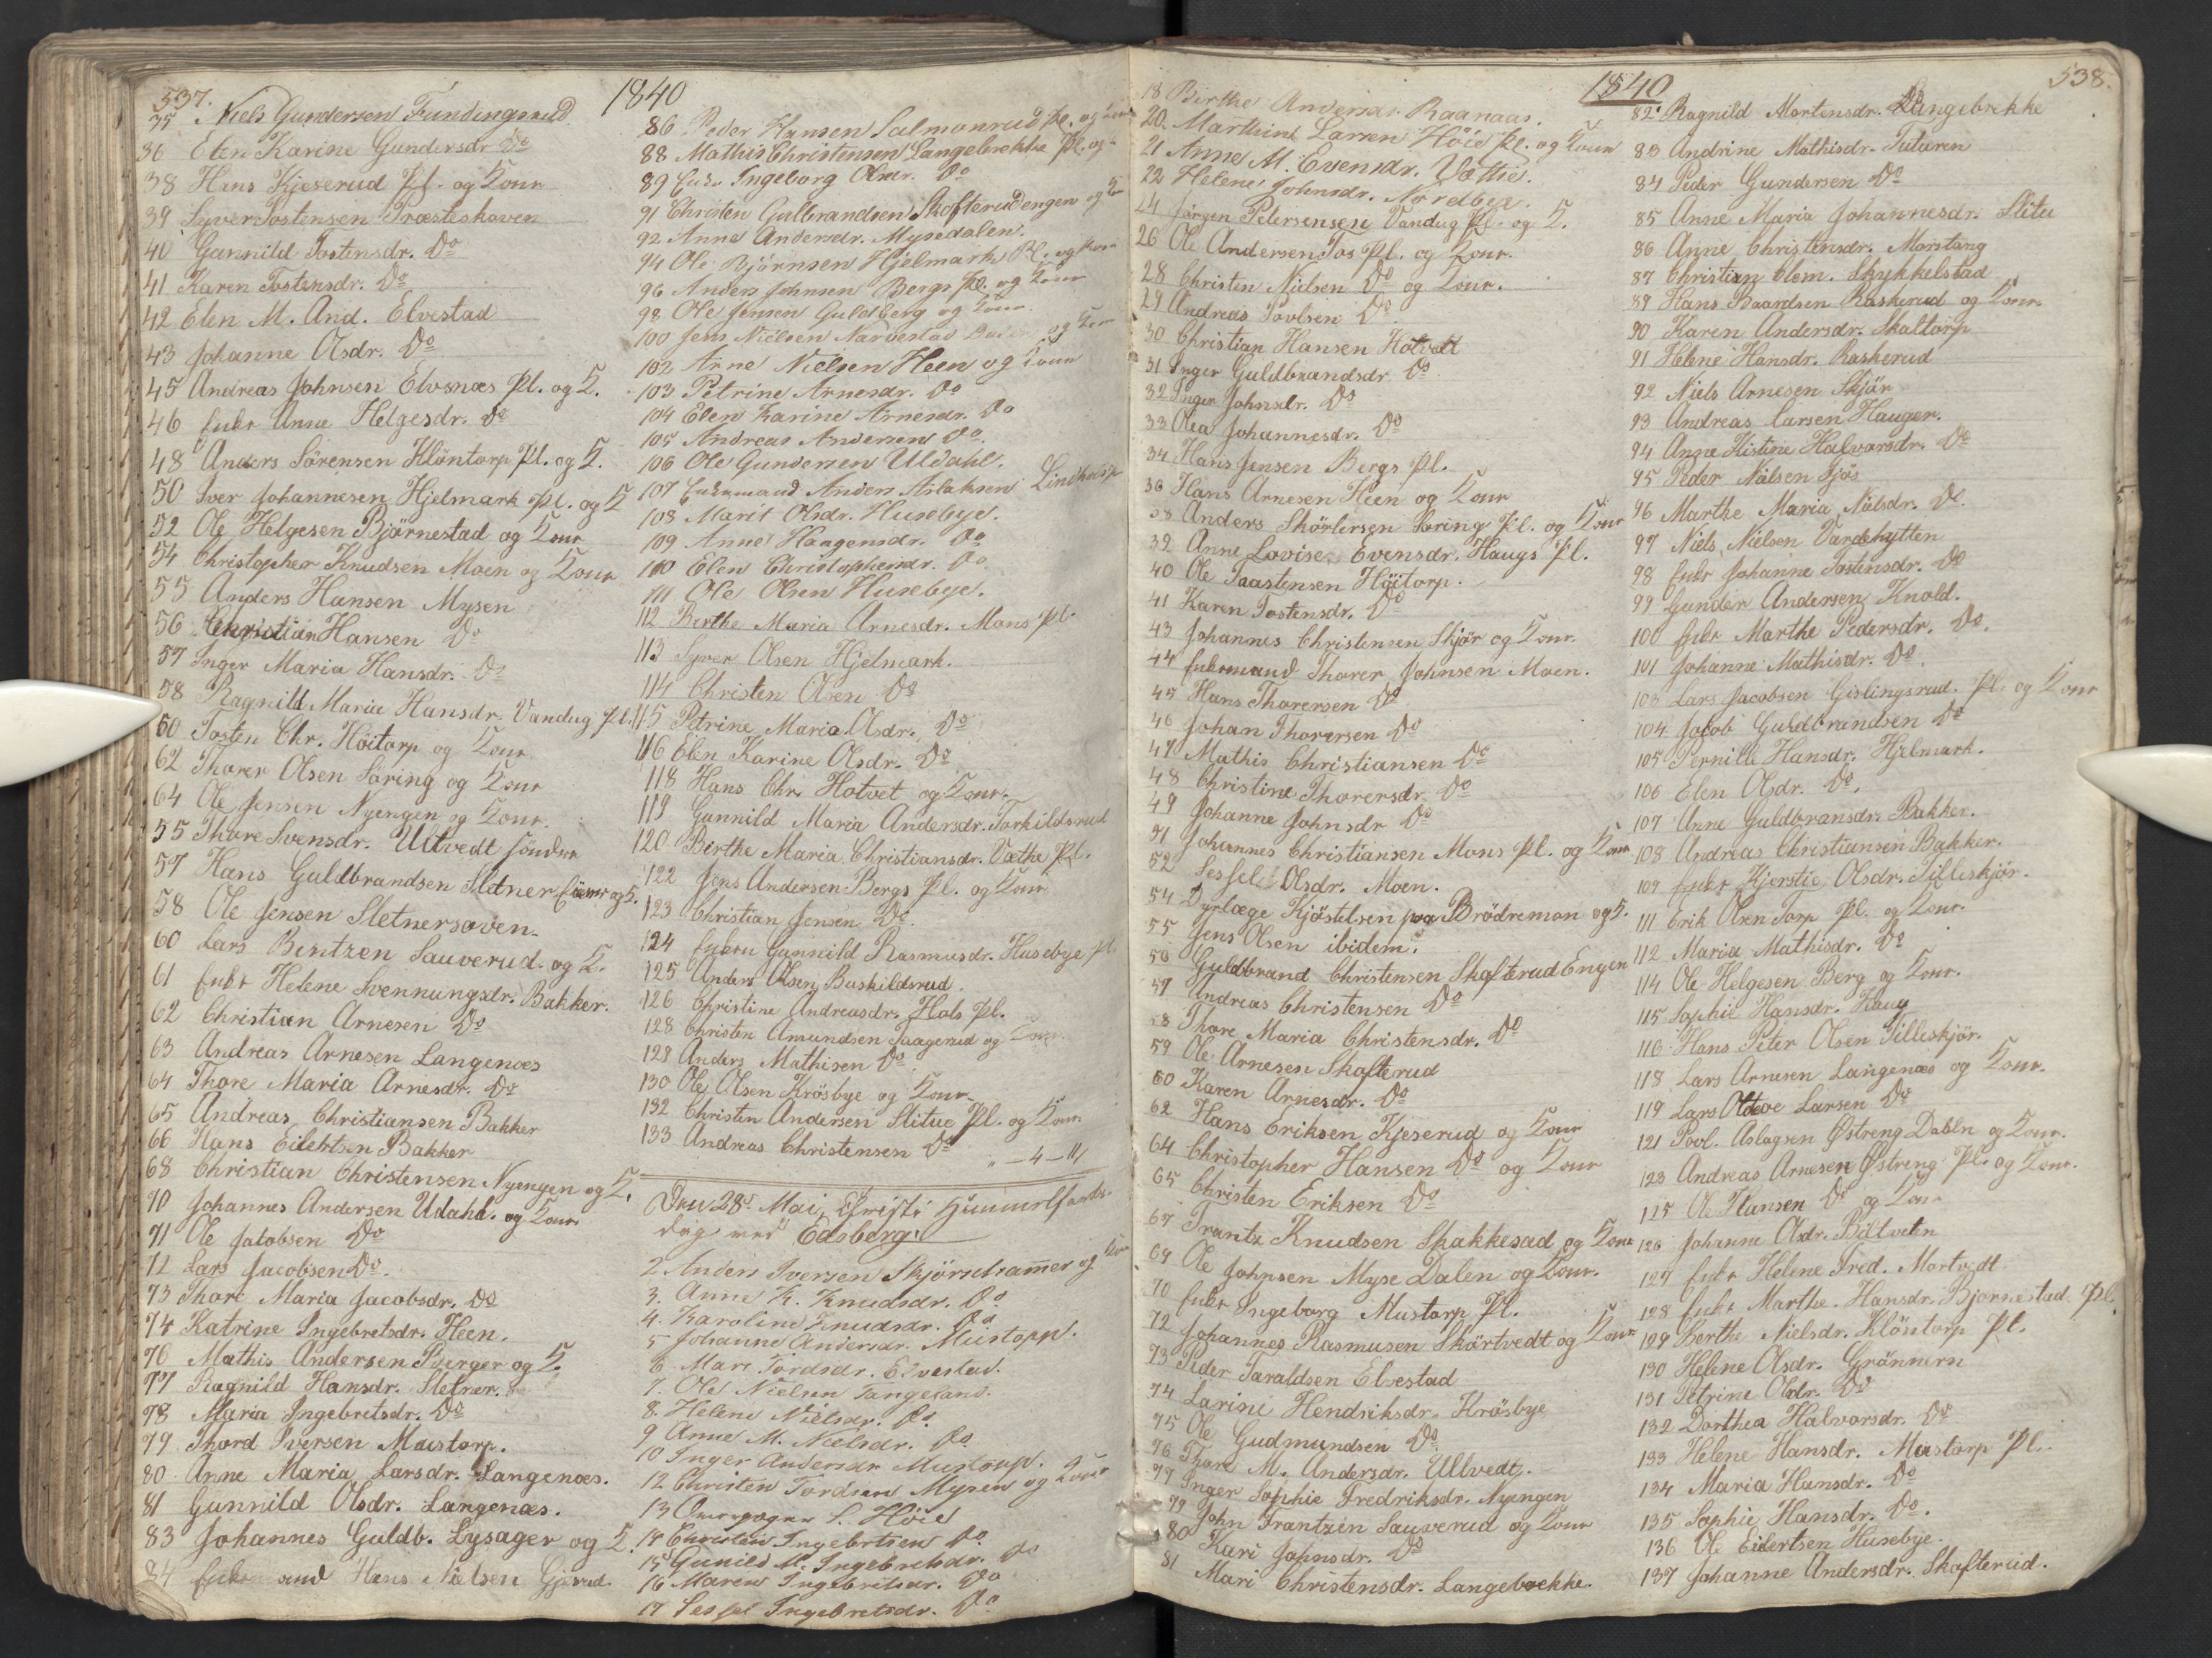 537.
1840
35 Niels Gundersen Fundingsrud
36 Elen Karine Gundersdr Do
38 Hans Kjeserud Pl. og Kone
39 Syver Tostensen Præsteskoven
40 Gunnild Tostensdr. Do
41 Karen Tostensdr. Do
42 Elen M. And. Elvestad
43 Johanne Olsdr. Do
45 Andreas Johnsen Elvsnæs Pl. og K.
46 Enke Anne Helgesdr. do
48 Anders Sörensen Klöntorp Pl. og K.
50 Iver Johannesen Hjelmark Pl. og K
52 Ole Helgesen Bjärnestad og Kone
54 Christopher Knudsen Moen og Kone
55 Anders Hansen Mysen
56 Christian Hansen Do
57 Inger Maria Hansdr. Do
58 Ragnild Maria Hansdr. Vandug Pl.
60 Tosten Chr. Höitorp og Kone
62 Thorer Olsen Saring og Kone
64 Ole Jensen Nyengen og Kone
55 Thore Svensdr. Ultvedt söndre
57 Hans Guldbrandsen Sletner og K.
58 Ole Jensen Sletnersaven
60 Lars Bentzen Sauverud og K.
61 Enke Helene Svennungsdr. Bakker.
62 Christian Arnesen Do
63 Andreas Arnesen Langenæs
64 Thore Maria Arnesdr. Do
65 Andreas Christiansen Bakker
66 Hans Eilertsen Bakker
68 Christian Christensen Nyengen og K.
70 Johannes Andersen Udahl. og Kone
71 Ole Jacobsen Do
72 Lars Jacobsen Do.
73 Thore Maria Jacobsdr. Do
74 Katrine Ingebretsdr. Heen.
76 Mathis Andersen Berger og K.
77 Ragnild Hansdr. Sletner.
78 Maria Ingebretsdr. Do
79 Thord Iversen Mastorp.
80 Anne Maria Larsdr. Langenæs.
81 Gunnild Olsdr. Langenæs.
83 Johannes Guldb. Lysager og K.
84 Enkemand Hans Nielsen Gjørud.
86 Peder Hansen Salmonrud Pl. og Kone
88 Mathis Christensen Langebrekke Pl. og
89 Enke Ingeborg Olsdr. Do
91 Christen Gulbrandsen Skofterudengen og K
92 Anne Andersdr. Mysedalen.
94 Ole Bjørnsen Hjelmark Pl. og Kone
96 Anders Johnsen Bergs Pl. og Kone
98 Ole Jensen Guldberg og Kone.
100 Jens Nielsen Narvestad og Kone
102 Arne Nielsen Heen og Kone
103 Petrine Arnesdr. Do
104 Elen Karine Arnesdr. Do
105 Andreas Andersen Do.
106 Ole Gundersen Uldahl.
107 Enkemand Anders Aslaksen Lindhaug
108 Marit Olsdr. Husebye.
109 Anne Haagensdr. Do
110 Elen Christophersdr. Do
111 Ole Olsen Husebye.
112 Berthe Maria Arnesdr. Mons Pl.
113 Syver Olsen Hjelmark.
114 Christen Olsen Do
115 Petrine Maria Olsdr. Do
116 Elen Karine Olsdr. Do
118 Hans Chr. Hotvet og Kone.
119 Gunnild Maria Andersdr. Torkildsrud
120 Birthe Maria Christiansdr. Væthe Pl.
122 Jens Andersen Bergs Pl. og Kone
123 Christian Jensen Do.
124 Enken Gunnild Rasmusdr. Husebye Pl
125 Anders Olsen Buskildsrud.
126 Christine Andreasdr. Hals Pl.
128 Christen Amundsen Taagerud og Kone.
128 Anders Mathisen Do
130 Ole Olsen Kräsbye og Kone
132 Christen Andersen Slitue Pl. og Kone.
133 Andreas Christensen Do
„ – 4 – 11/
Den 28de Mai, Christi Himmelfarts-
dag ved Edsberg.
2 Anders Iversen Skjørshammer og Kone
3. Anne K. Knudsdr. Do
4. Karoline Knudsdr. Do
5 Johanne Andersdr. Mustorp.
6. Mari Tordsdr. Elvestad.
7. Ole Nielsen Tangesand.
8. Helene Nielsdr. Do.
9 Anne M. Nielsdr. Do
10 Inger Andersdr Mustorp.
12 Christen Tordsen Mysen og Kone
13 S. Höie
14 Christen Ingebretsen Do.
15 Gunild M. Ingebretsdr. Do
16 Maren Ingebretsdr. Do
17 Sessel Ingebretsdr. Do
1840
538.
18 Birthe Andersdr. Raanaas.
20. Marthins Larsen Höie Pl. og Kone
21 Anne M. Evensdr. Væthe.
22 Helene Johnsdr. Nordbye.
24 Jörgen Petersensen Vandug Pl. og K.
26 Ole Andersen Fos Pl. og Kone.
28 Christen Nielsen Do og Kone.
29 Andreas Povlsen Do
30 Christian Hansen Hotvedt
31 Inger Guldbrandsdr. Do
32 Inger Johnsdr. Do
33 Olea Johannesdr. Do
34 Hans Jensen Bergs Pl.
36 Hans Arnesen Heen og Kone
38 Anders Skörtersen Saring Pl. og Kone
39 Anne Lovise Evensdr. Haugs Pl.
40 Ole Taastensen Höitorp.
41 Karen Tostensdr. Do
43 Johannes Christensen Skjör og Kone.
44 Enkemand Thorer Johnsen Moen.
45 Hans Thorersen Do
46 Johan Thorersen Do
47 Mathis Christiansen Do
48 Christine Thorersdr. Do
49 Johanne Johnsdr Do
51 Johannes Christiansen Mons Pl. og Kone
52 Sessel Olsdr. Moen.
54 Dyrlæge Kjöstelsen paa Brödremon og K.
55 Jens Olsen ibidem.
56 Guldbrand Christensen Skofterud Engen
57 Andreas Christensen Do
58 Thore Maria Christensdr. Do
59 Ole Arnesen Skofterud
60 Karen Arnesdr. Do
62 Hans Eriksen Kjeserud og Kone
64 Christopher Hansen Do og Kone
65 Christen Eriksen Do
67 Frantz Knudsen Skakkesad og Kone
69 Ole Johnsen Myse Dalen og Kone.
70 Enke Ingeborg Mustorp Pl.
72 Johannes Rasmusen Skörtvedt og Kone
73 Peder Taraldsen Elvestad
74 Larine Hendriksdr. Kräsbye
75 Ole Gudmundsen Do
76 Thore M. Andersdr. Ullvedt.
77 Inger Sophie Fredriksdr. Nyengen
79 John Frantzen Sauverud og Kone
80 Kari Johnsdr. Do
81 Mari Christensdr. Langebrekke.
82 Ragnild Mortensdr. Langebrekke
83 Andrine Mathisdr. Tuturen
84 Peder Gundersen Do
85 Anne Maria Johannesdr. Slitu
86 Anne Christensdr. Morstang
87 Christian Clem. Skykkelstad
89 Hans Baardsen Raskerud og Kone.
90 Karen Andersdr. Skaltorp
91 Helene Hansdr. Raskerud
92 Niels Arnesen Skjör
93 Andreas Larsen Hauger.
94 Anne Kistine Halvorsdr. Do
95 Peder Nielsen Gjös
96 Marthe Maria Nielsdr. Do.
97 Niels Nielsen Vardehytten
98 Enke Johanne Tostensdr. Do
99 Gunder Andersen Knold.
100 Enke Marthe Pedersdr. Do.
101 Johanne Mathisdr. Do.
103 Lars Jacobsen Gislingsrud. Pl. og Kone
104 Jacob Guldbrandsen Do
105 Pernille Hansdr. Hjelmark.
106 Elen Olsdr. Do.
107 Anne Guldbransdr. Bakker.
108 Andreas Christiansen Bakker.
109 Enke Kjerstie Olsdr. Tilleskjör.
111 Erik Olsen Torp Pl. og Kone.
112 Maria Mathisdr. Do
114 Ole Helgesen Berg og Kone.
115 Sophie Hansdr. Haug
116 Hans Peter Olsen Tilleskjör.
118 Lars Arnesen Langenæs og Kone.
119 Lars Larsen Do
121 Povl. Aslagsen Østreng og Kone.
123 Andreas Arnesen Østreng Pl. og Kone.
125 Ole Hansen Do og Kone
126 Johanne Olsdr. Biltveten
127 Enke Helene Fred. Mortvedt
128 Enke Marthe Hansdr. Bjornestad Pl.
129 Berthe Nielsdr. Klöntorp Pl.
130 Helene Olsdr. Grönnern
131 Petrine Olsdr. Do
132 Dorthea Halvorsdr. Do
133 Helene Hansdr. Mustorp Pl.
134 Maria Hansdr. Do
135 Sophie Hansdr. Do.
136 Ole Eilertsen Husebye.
137 Johanne Andersdr. Skofterud.